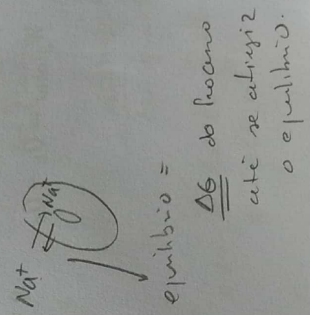 Na+
Na+
equilibrio =
ΔG do processo
até se atingir
o equilibrio.